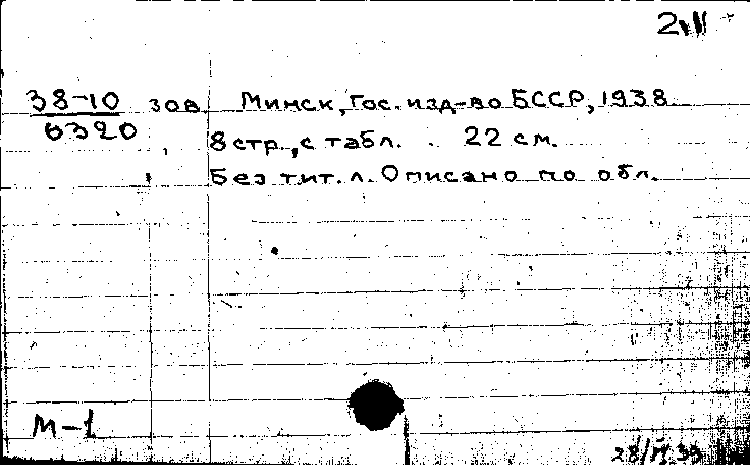 38-10 зов. Минск, Гос. изд-во БССР, 1938
6320 8 стр., с табл. 22 см.
Без тит. л. Описано по обл.
М-1